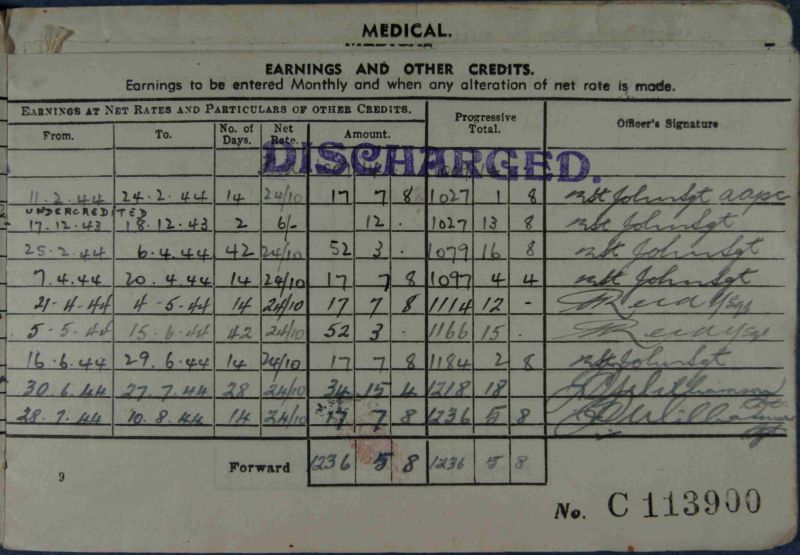 MEDICAL.
EARNINGS AND OTHER CREDITS.
Earnings to be entered Monthly and when any alteration of net rate is made.
EARNINGS AT NET RATES AND PARTICULARS OF OTHER CREDITS. Progressive Total. Officer's Signature
From. To. No. of Days. Net Rate. Amount.
DISCHARGED.
11.2.44 24.2.44 14 24/10 17 7 8 1027 1 8 St John Sgt aapc
UNDERCREDITED
17.12.43 18.12.43 2 6/- 12 . 1027 13 8 St John Sgt
25.2.44 6.4.44 42 24/10 52 3 . 1079 16 8 St John Sgt
7.4.44 20.4.44 14 24/10 17 7 8 1097 4 4 St John Sgt
21-4-44 4-5-44 14 24/10 17 7 8 1114 12 - Reid
5-5-44 15-6-44 42 24/10 52 3 . 1166 15 . Reid
16.6.44 29.6.44 14 24/10 17 7 8 1184 2 8 St John Sgt
30.6.44 27.7.44 28 24/10 34 15 4 1218 18 Williamson
28.7.44 10.8.44 14 24/10 17 7 8 1236 5 8 Williamson
Forward 1236 5 8 1236 5 8
9
No. C 113900